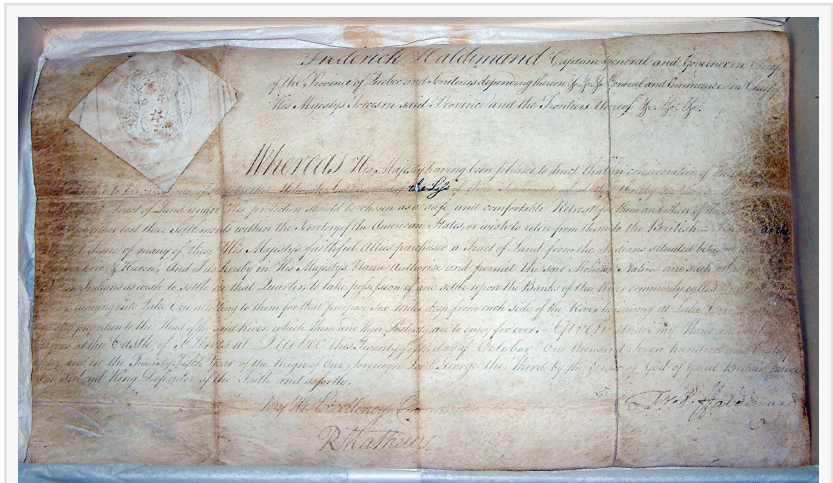 Frederick Haldimand Captain General and Governor in Chief
of the Province of Quebec and Territories depending thereon &c. &c. &c. General and Commander in Chief
His Majesty's Forces in said Province and the Frontiers thereof &c. &c. &c.
Whereas His Majesty having been pleased to direct that in consideration of the
the Loss of their
Tract of Land under His protection should be chosen as a safe and comfortable Retreat for them and others of the
lost their Settlements within the Territory of the American States, or wish to retire from them to the British
desire of many of these His Majesty's faithful Allies purchased a Tract of Land from the Indians situated between
& Huron, And I do hereby in His Majesty's Name authorise and permit the said Mohawk Nation and such other
Indians as wish to settle in that Quarter to take possession of and settle upon the Banks of the River commonly called
running into Lake Erie allotting to them for that purpose Six Miles deep from each side of the River beginning at Lake Erie
proportion to the Head of the said River, which them and their Posterity are to enjoy for ever. Given under my Hand and Seal
at the Castle of St Lewis at Quebec this Twenty fifth day of October One thousand Seven hundred and Eighty
and in the Twenty Fifth Year of the Reign of Our Sovereign Lord George the Third by the Grace of God of Great Britain France
and King Defender of the Faith and so forth.
By His Excellency's Command
R Mathews
Fred. Haldimand